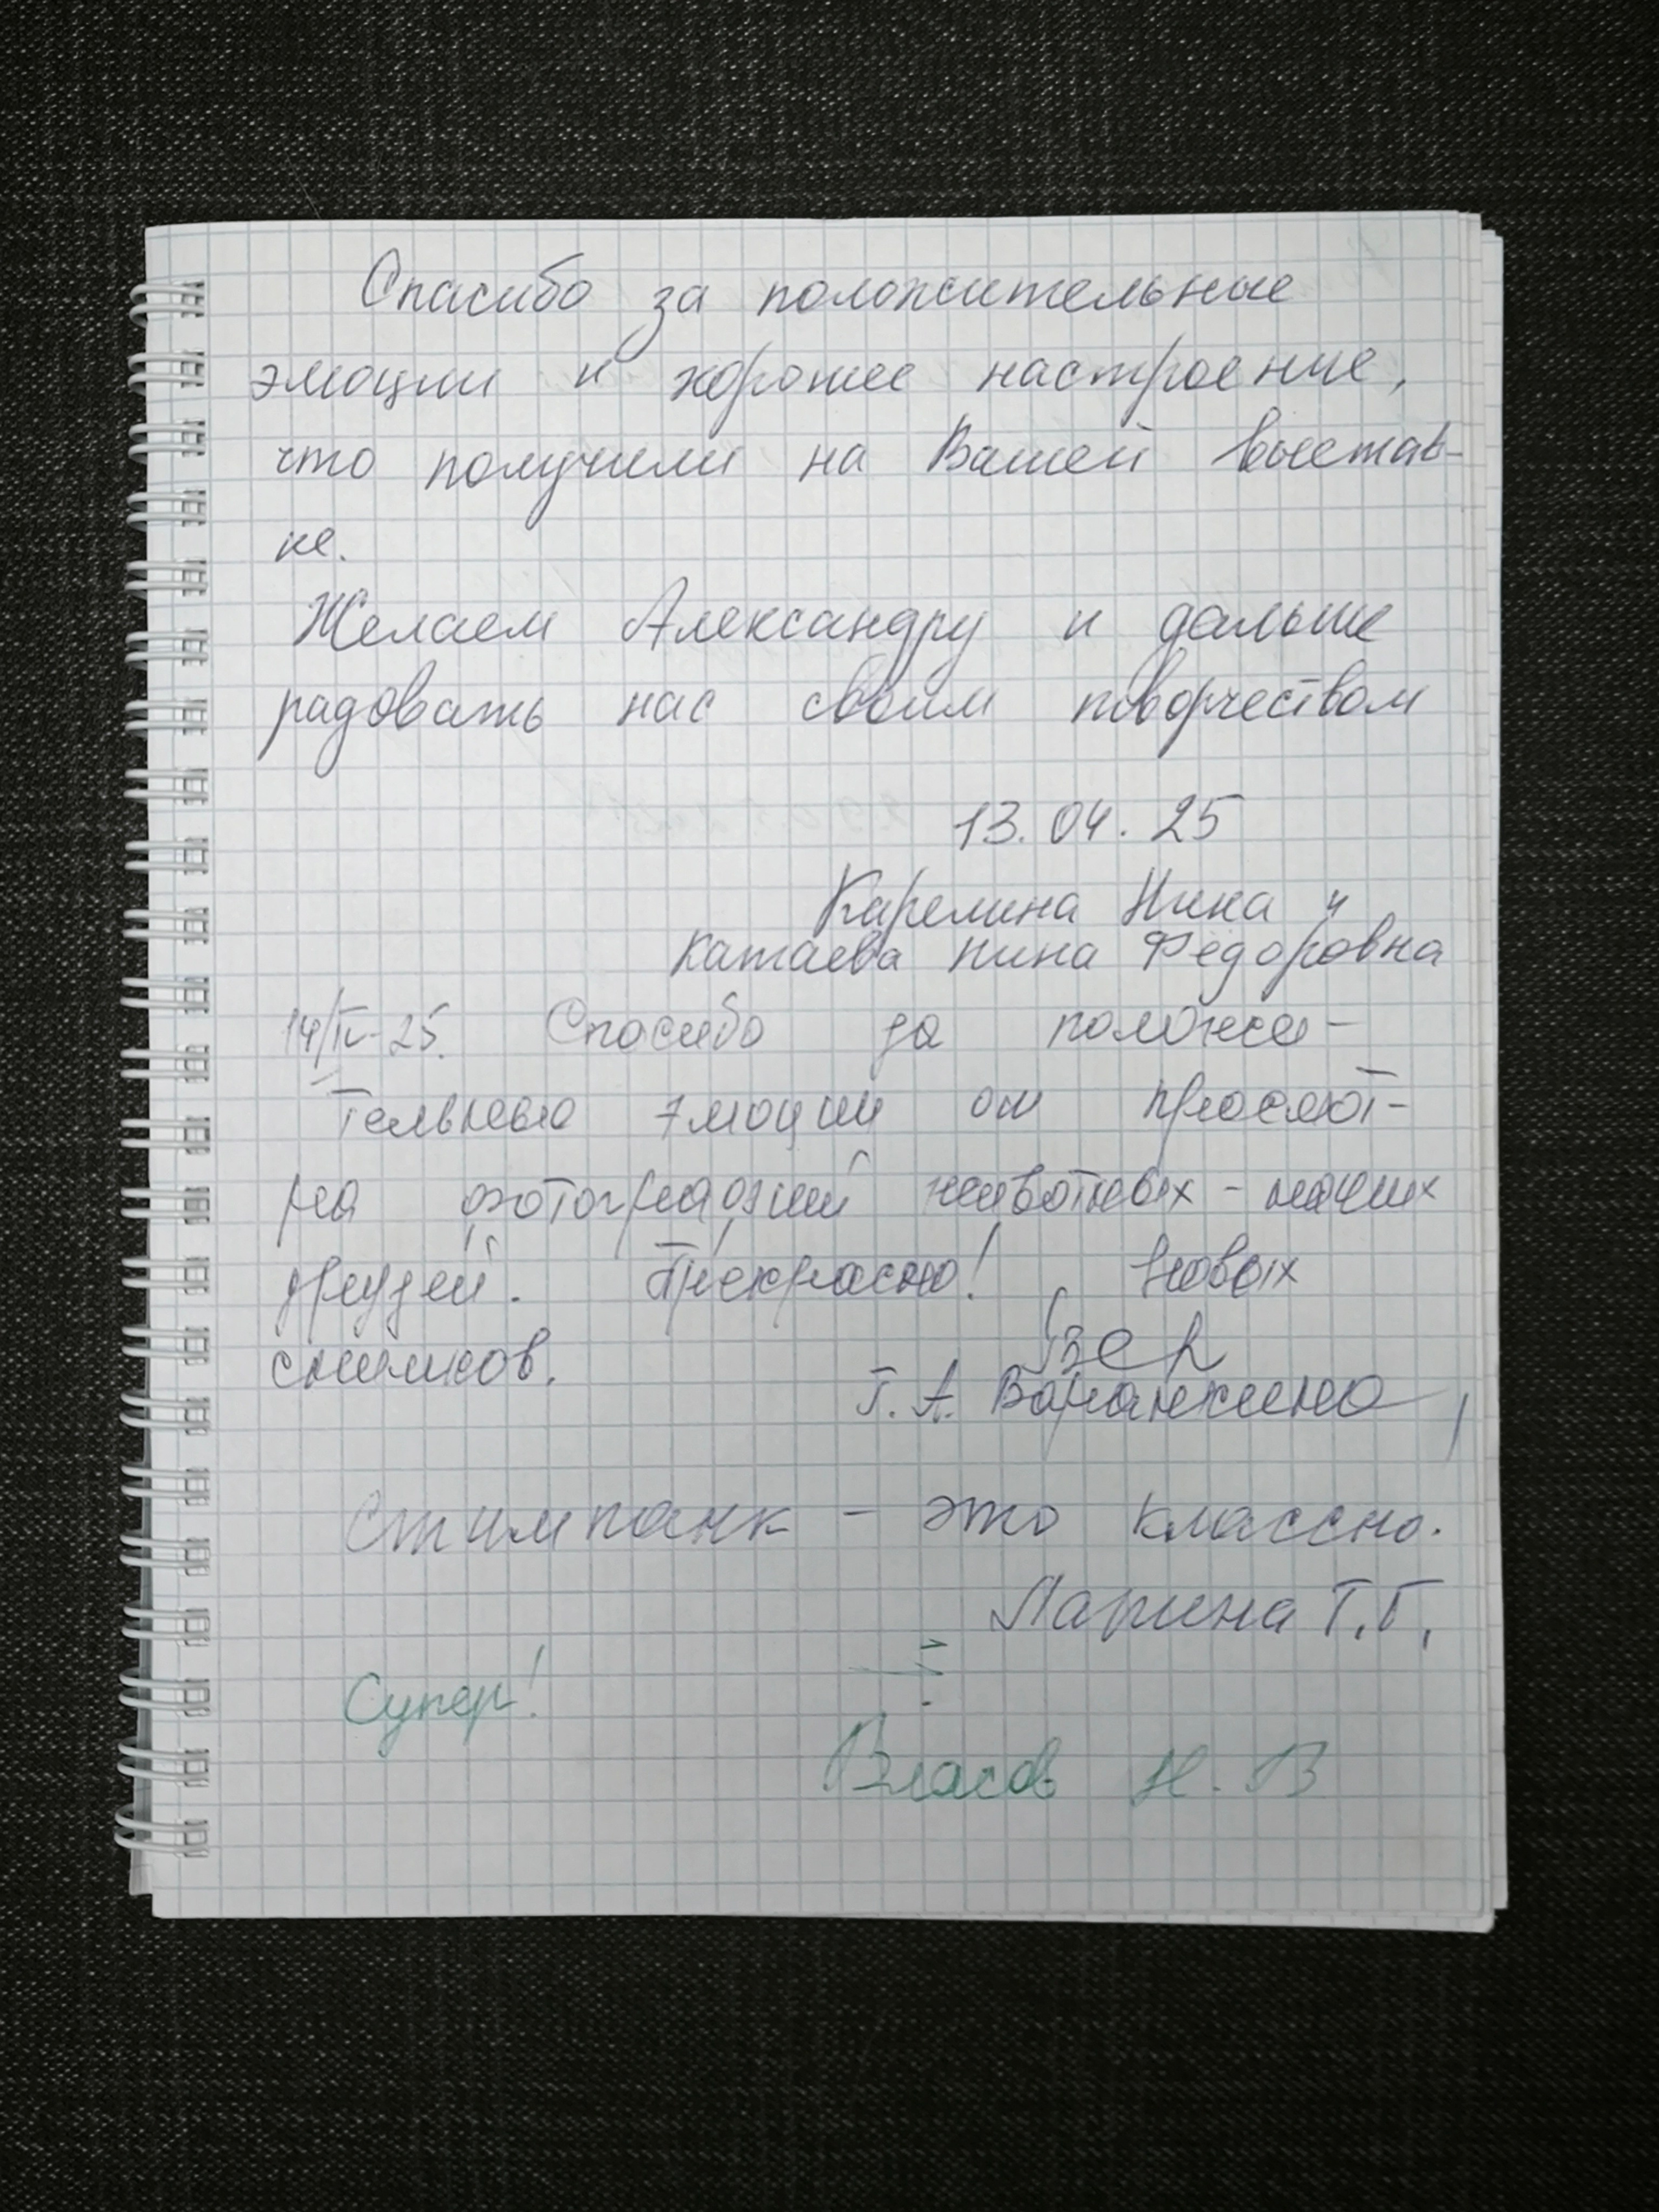 Спасибо за положительные
эмоции и хорошее настроение,
что получили на Вашей выстав-
ке.
Желаем Александру и дальше
радовать нас своим творчеством
13.04.25
Карелина Нина и
Катаева Нина Фёдоровна
14/IV-25. Спасибо за положи-
тельные эмоции от просмот-
ра фотографий животных - наших
друзей. Прекрасно! Новых
снимков.
Т. А. Варанкина
Стимпанк - это классно.
Ларина Т.Г.
Супер!
Власов Н. В